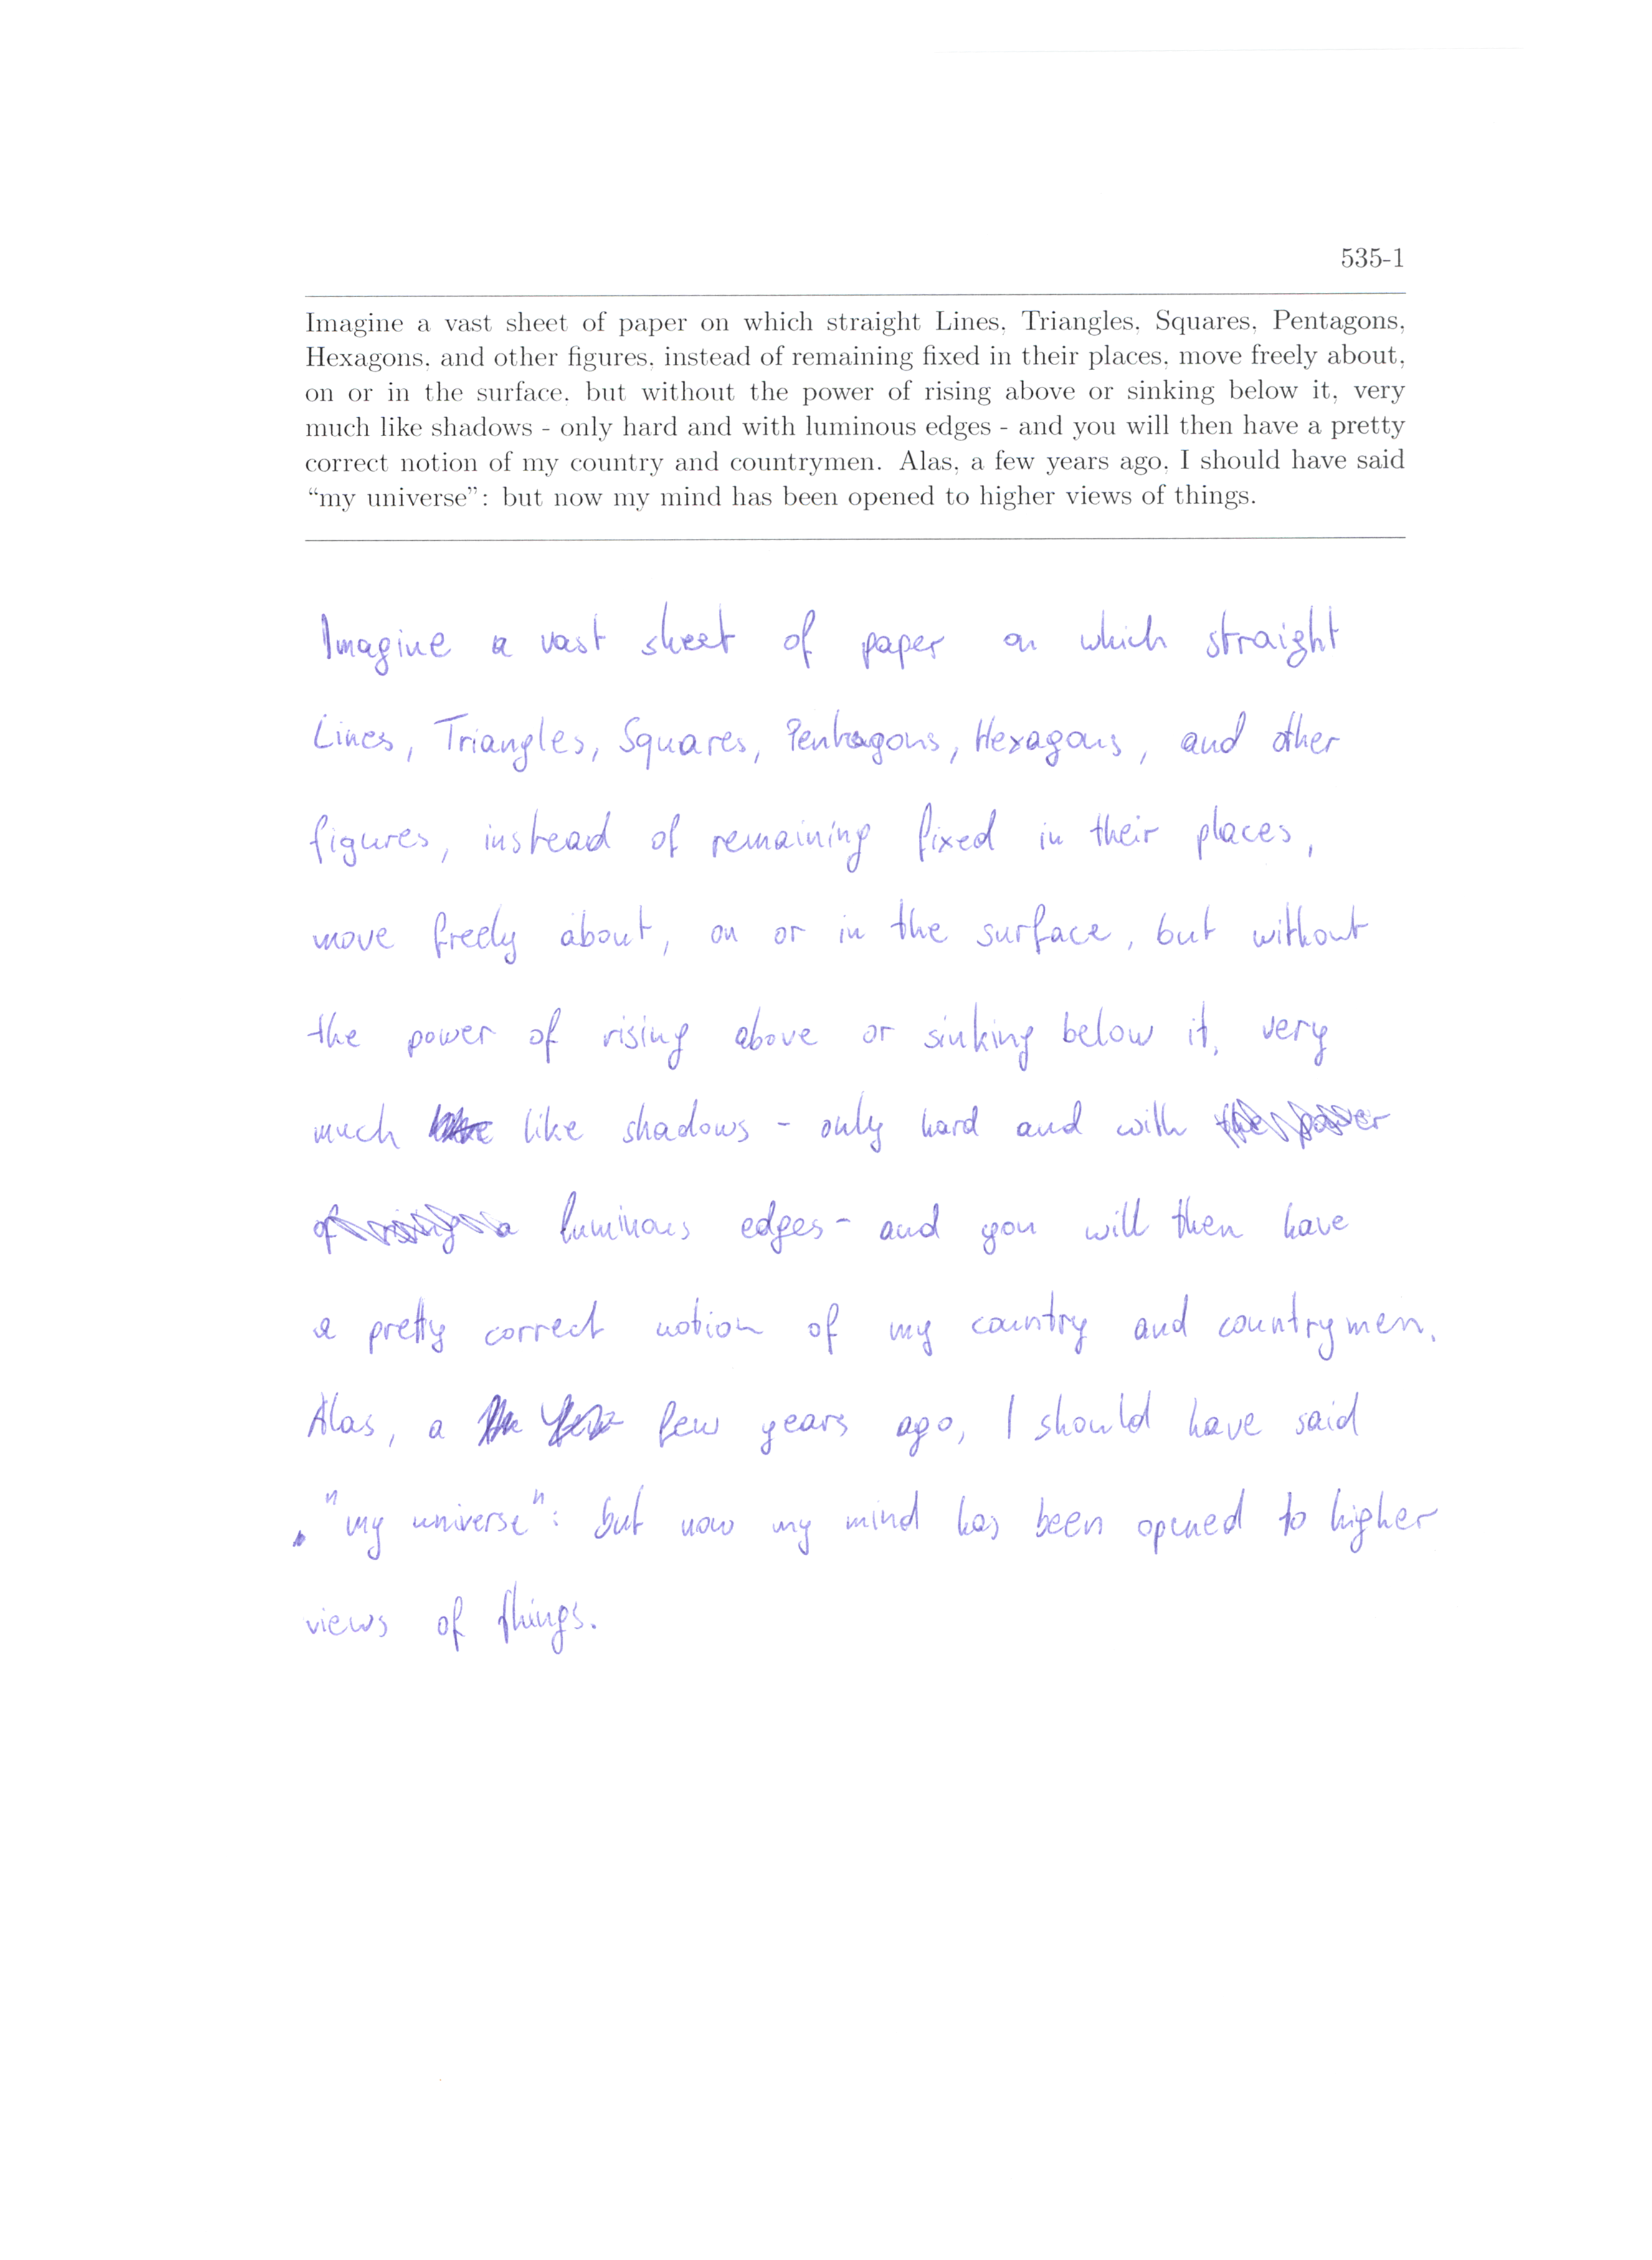 535-1
Imagine a vast sheet of paper on which straight Lines, Triangles, Squares, Pentagons,
Hexagons, and other figures, instead of remaining fixed in their places, move freely about,
on or in the surface, but without the power of rising above or sinking below it, very
much like shadows - only hard and with luminous edges - and you will then have a pretty
correct notion of my country and countrymen. Alas, a few years ago, I should have said
“my universe”: but now my mind has been opened to higher views of things.
Imagine a vast sheet of paper on which straight
Lines, Triangles, Squares, Pentagons, Hexagons, and other
figures, instead of remaining fixed in their places,
move freely about, on or in the surface, but without
the power of rising above or sinking below it, very
much like shadows - only hard and with
luminous edges - and you will then have
a pretty correct notion of my country and countrymen.
Alas, a few years ago, I should have said
"my universe": but now my mind has been opened to higher
views of things.